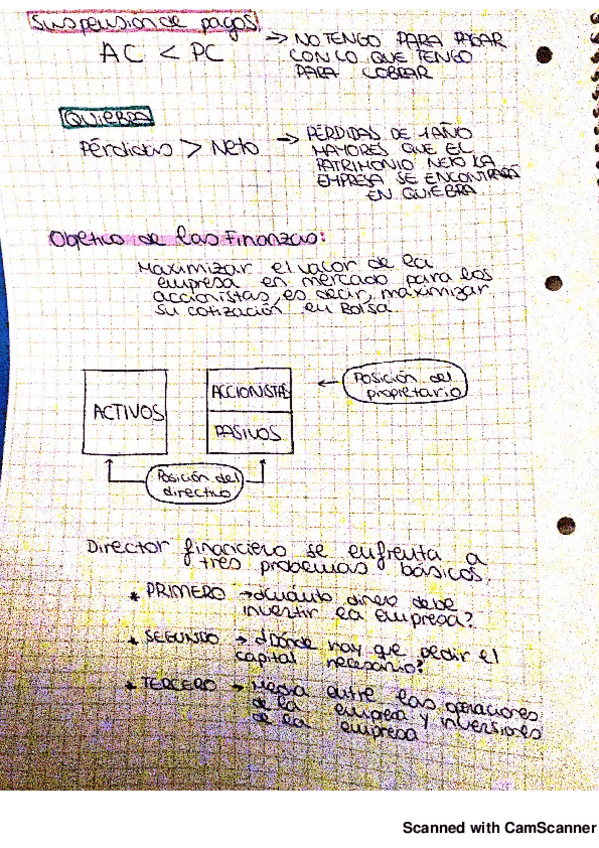 Suspensión de pagos:
AC < PC
→ NO TENGO PARA PAGAR
CON LO QUE TENGO
PARA COBRAR
QUIEBRA
Pérdidas > Neto
→ PÉRDIDAS DE 1 AÑO
MAYORES QUE EL
PATRIMONIO NETO LA
EMPRESA SE ENCONTRARÁ
EN QUIEBRA.
Objetivo de las Finanzas:
Maximizar el valor de la
empresa en mercado para los
accionistas, es decir, maximizar
su cotización en Bolsa.
ACTIVOS
ACCIONISTAS
PASIVOS
← Posición del
propietario
Posición del
directivo
Director financiero se enfrenta a
tres problemas básicos.
* PRIMERO → ¿Cuánto dinero debe
invertir la empresa?
* SEGUNDO → ¿Dónde hay que pedir el
capital necesario?
* TERCERO → Media entre las operaciones
de la empresa y inversiones
de la empresa
Scanned with CamScanner